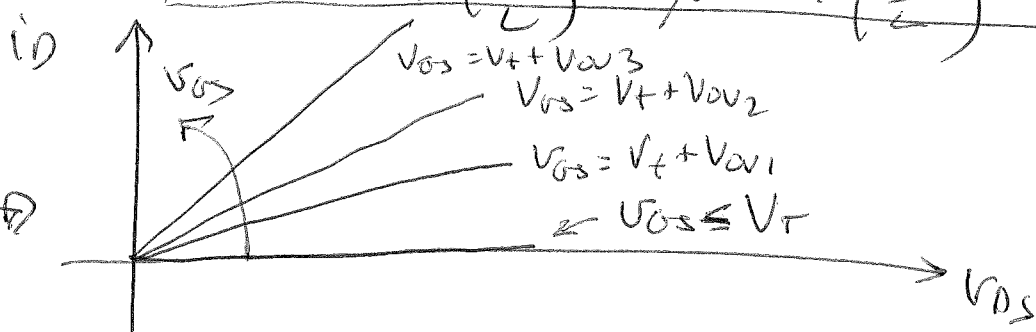 (L) (L)
i_D
V_GS = V_t + V_OV3
V_GS
V_GS = V_t + V_OV2
V_GS = V_t + V_OV1
V_GS ≤ V_T
V_DS